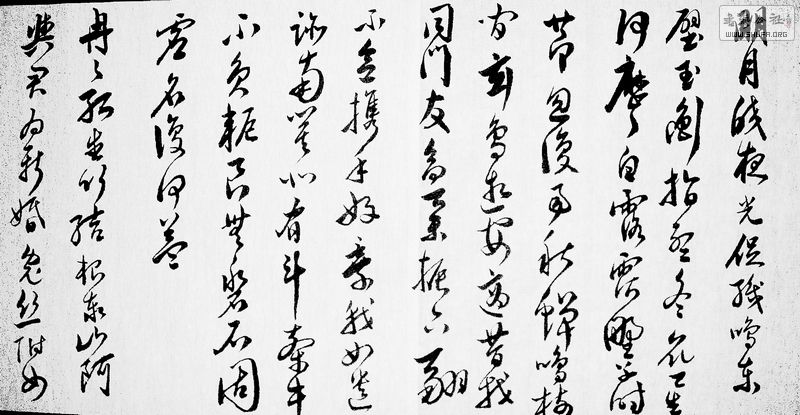 明月皎夜光促織鳴東
壁玉衡指孟冬衆星
何歷〻白露霑野草時
節忽復易秋蟬鳴樹
間玄鳥逝安適昔我
同門友高舉振六翮
不念攜手好棄我如遺
跡南箕北有斗牽牛
不負軛良無磐石固
虛名復何益
冉〻孤生竹結根泰山阿
與君為新婚兔絲附女
WWW.SHUFA.ORG